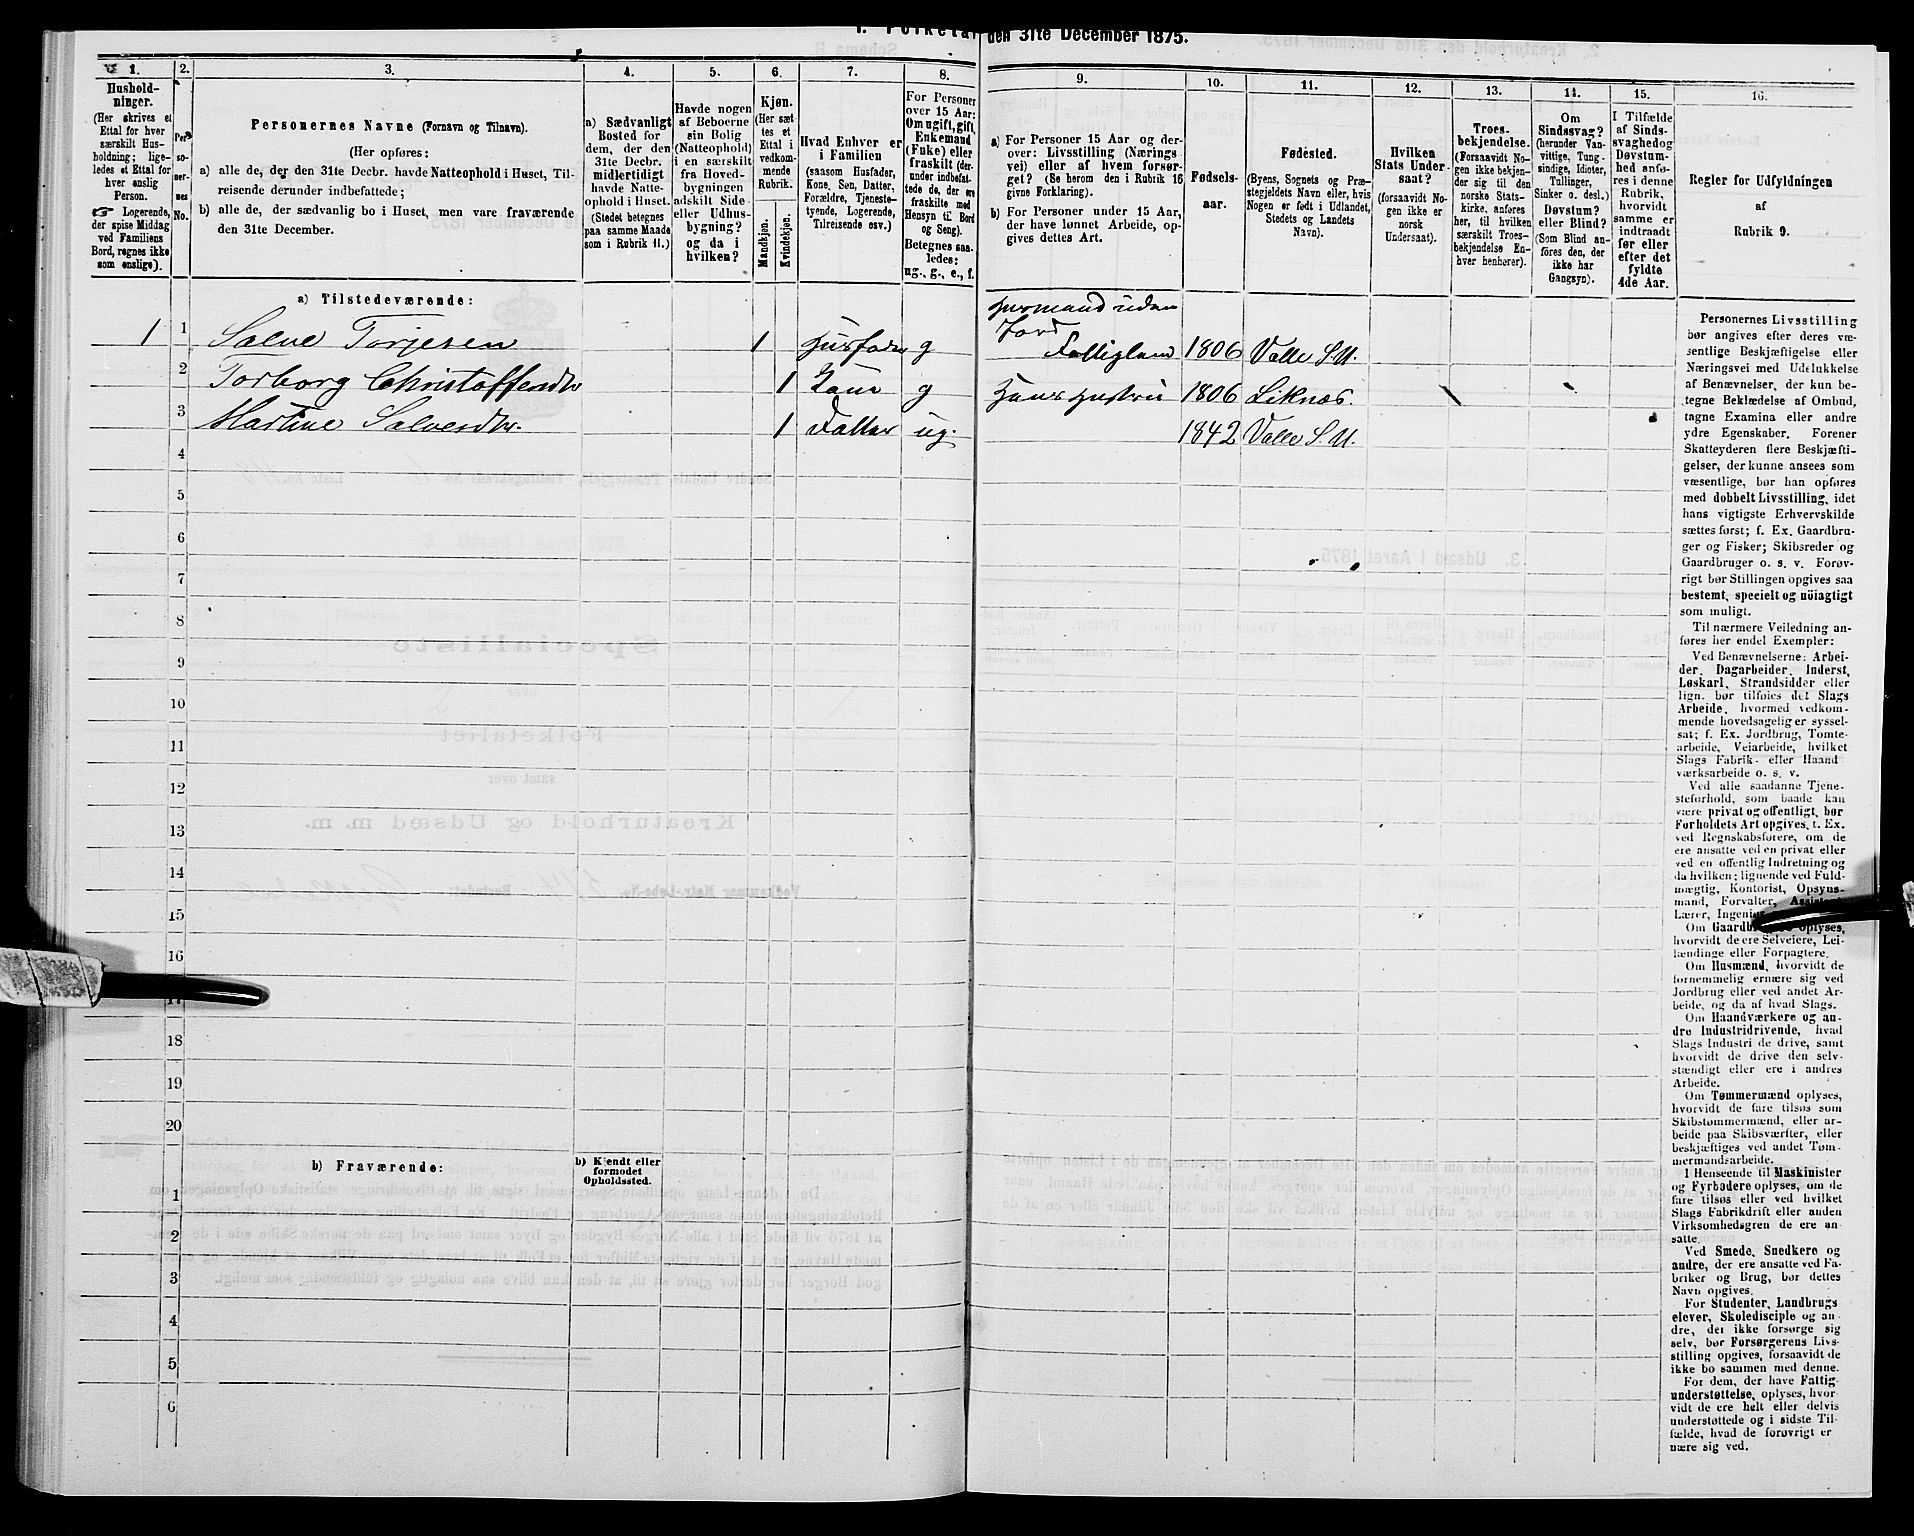 den 31te December 1875.
1.
Hushold-
ninger.
(Her skrives et
Ettal for hver
særskilt Hus-
holdning; lige-
ledes et Ettal for
hver enslig
Person.
Logerende,
der spise Middag
ved Familiens
Bord, regnes ikke
som enslige).
2.
Per-
so-
ner-
nes
No.
3.
Personernes Navne (Fornavn og Tilnavn).
(Her opføres:
a) alle de, der den 31te Decbr. havde Natteophold i Huset, Til-
reisende derunder indbefattede;
b) alle de, der sædvanlig bo i Huset, men vare fraværende
den 31te December.
4.
a) Sædvanligt
Bosted for
dem, der den
31te Decbr.
midlertidigt
havde Natte-
ophold i Huset.
(Stedet betegnes
paa samme Maade
som i Rubrik 11.)
5.
Havde nogen
af Beboerne
sin Bolig
(Natteophold)
i en særskilt
fra Hoved-
bygningen
adskilt Side-
eller Udhus-
bygning?
og da i
hvilken?
6.
Kjøn.
(Her sæt-
tes et
Ettal i
vedkom-
mende
Rubrik.
Mandkjøn.
Kvindekjøn.
7.
Hvad Enhver er
i Familien
(saasom Husfader,
Kone, Søn, Datter,
Forældre, Tjeneste-
tyende, Logerende,
Tilreisende osv.)
8.
For Personer
over 15 Aar:
Om ugift, gift,
Enkemand
(Enke) eller
fraskilt (der-
under indbefat-
tede de, der ere
fraskilte med
Hensyn til Bord
og Seng).
Betegnes saa-
ledes:
ug., g., e., f.
9.
a) For Personer 15 Aar og der-
over: Livsstilling (Nærings-
vei) eller af hvem forsør-
get? (Se herom den i Rubrik 16
givne Forklaring).
b) For Personer under 15 Aar,
der have lønnet Arbeide, op-
gives dettes Art.
10.
Fødsels-
aar.
11.
Fødested.
(Byens, Sognets og Præ-
stegjeldets Navn eller, hvis
Nogen er født i Udlandet,
Stedets og Landets
Navn).
12.
Hvilken
Stats Under-
saat?
(forsaavidt No-
gen ikke er
norsk
Undersaat).
13.
Troes-
bekjendelse.
(Forsaavidt No-
gen ikke bekjen-
der sig til den
norske Stats-
kirke, anføres
her, til hvilken
særskilt Troes-
bekjendelse En-
hver henhører).
14.
Om
Sindssvag?
(herunder Van-
vittige, Tung-
sindige, Idioter,
Tullinger,
Sinker o. desl.)
Døvstum?
eller Blind?
(Som Blind an-
føres den, der
ikke har
Gangsyn).
15.
I Tilfælde
af Sinds-
svaghed og
Døvstum-
hed anfø-
res i denne
Rubrik,
hvorvidt
samme er
indtraadt
før eller
efter det
fyldte
4de Aar.
16.
Regler for Udfyldningen
af
Rubrik 9.
a) Tilstedeværende:
1 1 Salve Torjesen 1 Husfader g Husmand uden
Jord
Fattiglem 1806 Valle S.U.
2 Torborg Christoffersdtr 1 Kone g Hans Hustru 1806 Liknæs.
3 Martine Salvesdtr. 1 Datter ug. 1842 Valle S.U.
4
5
6
7
8
9
10
11
12
13
14
15
16
17
18
19
20
b) Fraværende:
b) Kjendt eller
formodet
Opholdssted.
1
2
3
4
5
6
Personernes Livsstilling
bør angives efter deres væ-
sentlige Beskjæftigelse eller
Næringsvei med Udelukkelse
af Benævnelser, der kun be-
tegne Beklædelse af Ombud,
tagne Examina eller andre
ydre Egenskaber. Forener
Skatteyderen flere Beskjæfti-
gelser, der kunne ansees som
væsentlige, bør han opføres
med dobbelt Livsstilling, idet
hans vigtigste Erhvervskilde
sættes først; f. Ex. Gaardbru-
ger og Fisker; Skibsreder og
Gaardbruger o. s. v. Forøv-
rigt bør Stillingen opgives saa
bestemt, specielt og nøiagtigt
som muligt.
Til nærmere Veiledning an-
føres her endel Exempler:
Ved Benævnelserne: Arbei-
der, Dagarbeider, Inderst,
Løskarl, Strandsidder eller
lign. bør tilføies det Slags
Arbeide, hvormed vedkom-
mende hovedsagelig er syssel-
sat; f. Ex. Jordbrug, Tomte-
arbeide, Veiarbeide, hvilket
Slags Fabrik- eller Haand
værksarbeide o. s. v.
Ved alle saadanne Tjene-
steforhold, som baade kan
være privat og offentligt, bør
Forholdets Art opgives, t. Ex.
ved Regnskabsførere, om de
ere ansatte ved en privat eller
ved en offentlig Indretning og
da hvilken; lignende ved Fuld-
mægtig, Kontorist, Opsyns-
mand, Forvalter,
Lærer,
Om oplyses,
hvorvidt de ere Selveiere, Lei-
lændinge eller Forpagtere.
Om Husmænd, hvorvidt de
fornemmelig ernære sig ved
Jordbrug eller ved andet Ar-
beide, og da af hvad Slags.
Om Haandværkere og an-
dre Industridrivende, hvad
Slags Industri de drive, samt
hvorvidt de drive den selv-
stændigt eller ere i andres
Arbeide.
Om Tømmermænd oplyses,
hvorvidt de fare tilsøs som
Skibstømmermænd, eller ar-
beide paa Skibsværfter, eller
beskjæftiges ved andet Tøm-
mermandsarbeide.
I Henseende til Maskinister
og Fyrbødere oplyses, om de
fare tilsøs eller ved hvilket
Slags Fabrikdrift eller anden
Virksomhedsgren de ere an-
satte.
Ved Smede, Snedkere og
andre, der ere ansatte ved Fa-
briker og Brug, bør dettes
Navn opgives.
For Studenter, Landbrugs
elever, Skoledisciple og an-
dre, der ikke forsørge sig
selv, bør Forsørgerens Livs-
stilling opgives, forsaavidt de
ikke bo sammen med denne.
For dem, der have Fattig-
understøttelse, oplyses, hvor-
vidt de ere helt eller delvis
understøttede og i sidste Til-
fælde, hvad de forøvrigt er
nære sig ved.